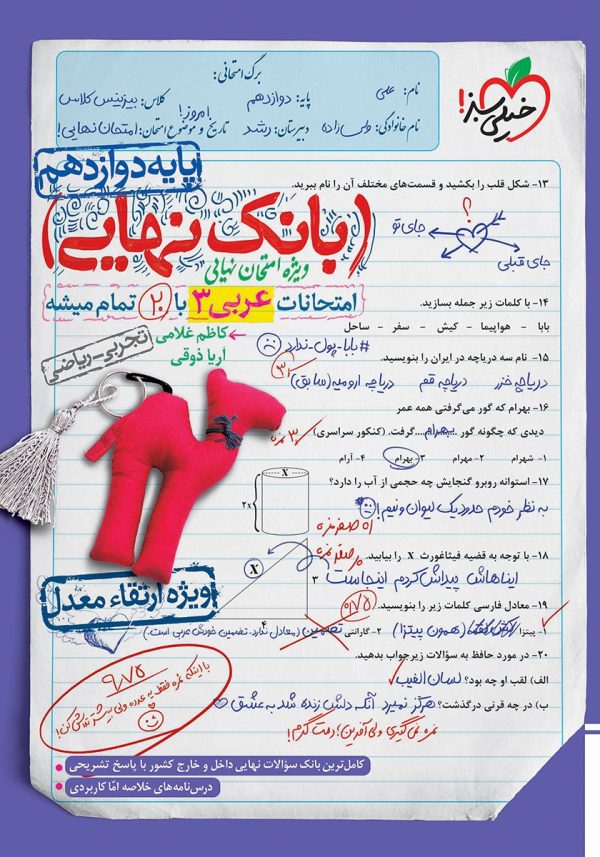 خیلی سبز!
برگ امتحانی:
نام: علی
پایه: دوازدهم
کلاس: بیزینس کلاس
نام خانوادگی: ولی زاده
دبیرستان: رشد
تاریخ و موضوع امتحان: امروز! امتحان نهایی!
پایه دوازدهم
(بانک نهایی)
ویژه امتحان نهایی
امتحانات عربی ۳ با ۲۰ تمام میشه
کاظم غلامی
آریا ذوقی
تجربی-ریاضی
۱۳- شکل قلب را بکشید و قسمت‌های مختلف آن را نام ببرید.
؟
جای تو
جای قبلی
۱۴- با کلمات زیر جمله بسازید.
بابا - هواپیما - کیش - سفر - ساحل
#بابا-پول-ندارد
۱۵- نام سه دریاچه در ایران را بنویسید.
دریاچه خزر دریاچه قم دریاچه ارومیه (سابق)
۱۶- بهرام که گور می‌گرفتی همه عمر
دیدی که چگونه گور بهرام گرفت. (کنکور سراسری)
۱- شهرام ۲- مهرام ۳- بهرام ۴- آرام
۱۷- استوانه روبرو گنجایش چه حجمی از آب را دارد؟
X
۲x
به نظر خودم حدود یک لیوان و نیم!
۱۸- با توجه به قضیه فیثاغورث X را بیابید.
X
۳
۴
ایناهاش پیداش کردم اینجاست
۱۹- معادل فارسی کلمات زیر را بنویسید.
۱- پیتزا (همون پیتزا) ۲- گارانتی تضمین (معادل ندارد. تضمین خودش عربی است.)
۲۰- در مورد حافظ به سؤالات زیر جواب بدهید.
الف) لقب او چه بود؟ لسان الغیب
ب) در چه قرنی درگذشت؟ هرگز نمیرد آنکه دلش زنده شد به عشق
نمره نمی‌گیری ولی آفرین؛ دمت گرم!
ویژه ارتقاء معدل
۹/۷۵
کامل‌ترین بانک سؤالات نهایی داخل و خارج کشور با پاسخ تشریحی
درس‌نامه‌های خلاصه امّا کاربردی